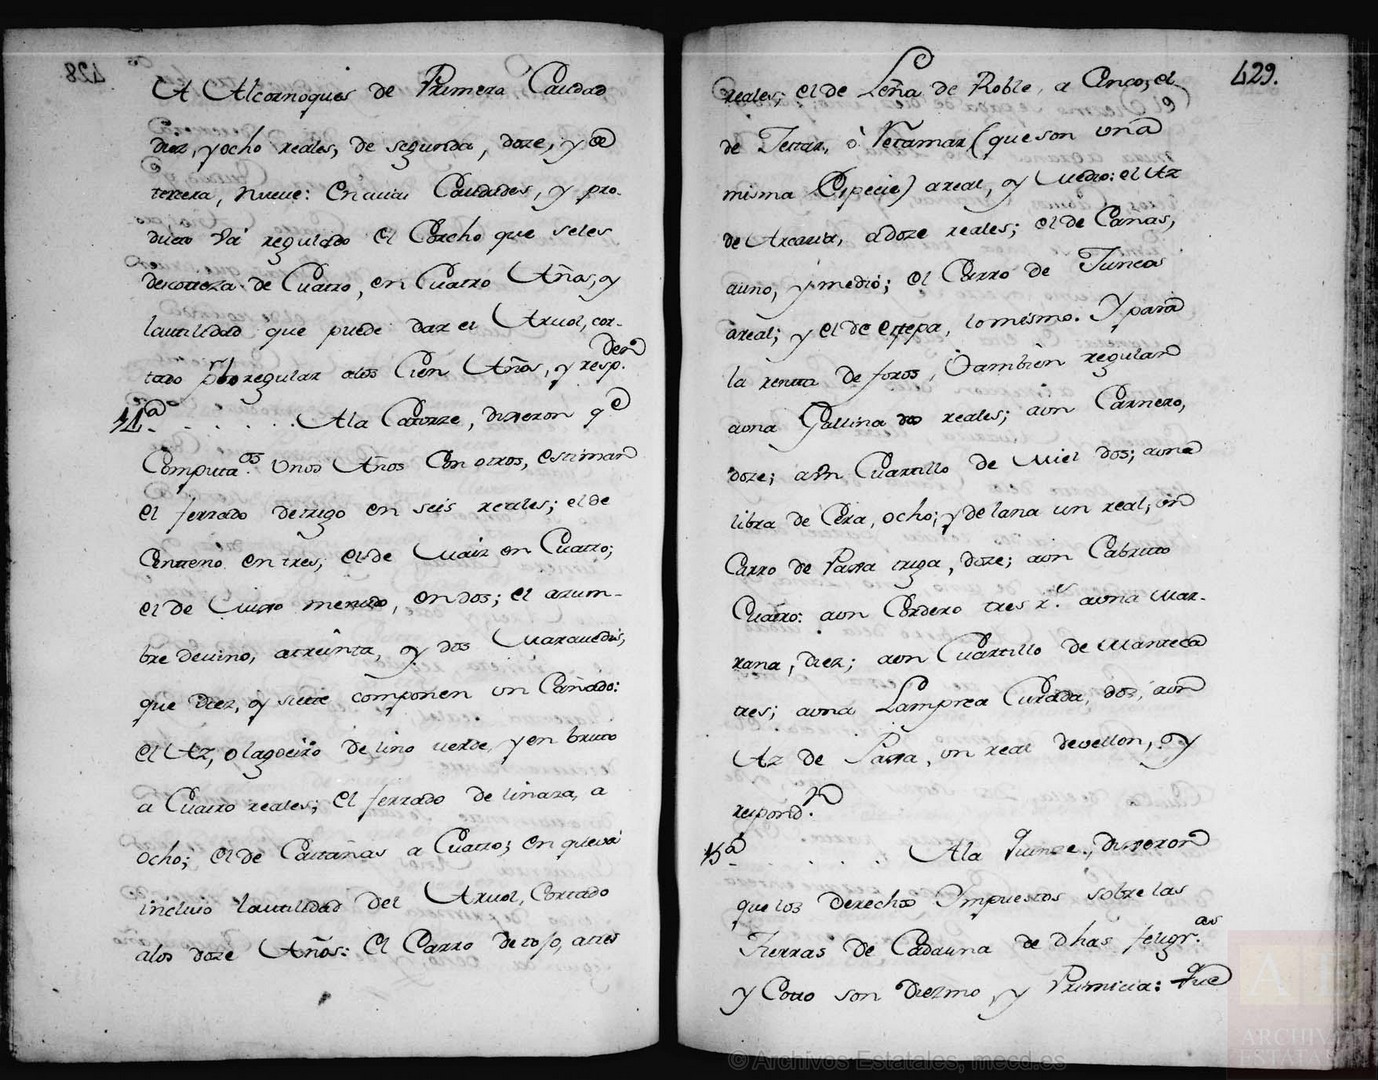 A Alcornoques de Primera Calidad
diez, y ocho reales, de segunda, doze, y de
tercera, nueve: En cuias Calidades, y pro-
ducto vá regulado el Corcho que seles
descorteza de Cuatro, en Cuatro Años, y
lautilidad que puede dar el Arvol, cor-
tado regular alos Cien Años, y resp.den
14.a . . . . . . Ala Catorze, dixeron q.e
Computa.os Unos Años Con otros, estiman
el ferrado detrigo en seis reales; el de
Centeno en tres; el de Maiz en Cuatro;
el de Millo menudo, en dos; el azum-
bre devino, atreinta, y dos Maravedis,
que diez, y siete componen un Cañado:
el Az, o lagoeiro de lino verde, y en bruto
a Cuatro reales; el ferrado de linaza, a
ocho; el de Castañas a Cuatro; en queva
incluio lautilidad del Arvol, Cortado
alos doze Años: El Carro de tojo, atres
429.
reales; el de Leña de Roble, a Cinco; el
de Tettar, ò Retamar (que son una
misma Especie) areal, y Medio: el Az
de Arcaria, a doze reales; el de Canas,
auno, y medio; el Carro de Juncos
areal; y el de estepa, lo mismo. Y para
la renta de foros, tambien regulan
auna Gallina dos reales; aun Carnero,
doze; aun Cuartillo de Miel dos; auna
libra de Cera, ocho; y de lana un real; un
Carro de Paja triga, doze; aun Cabrito
Cuatro: aun Cordero tres r.s auna Mar-
rana, diez; aun Cuartillo de Manteca
tres; auna Lamprea Curada, dos, aun
Az de Paja, un real devellon, y
respond.n
15.a . . . . . Ala Quinze, dixeron
que los derechos Impuestos sobre las
Tierras de Cadauna de dhas feligr.as
y Coto son Diezmo, y Primicia: que
© Archivos Estatales, mecd.es
AE
ARCHIVOS
ESTATALES